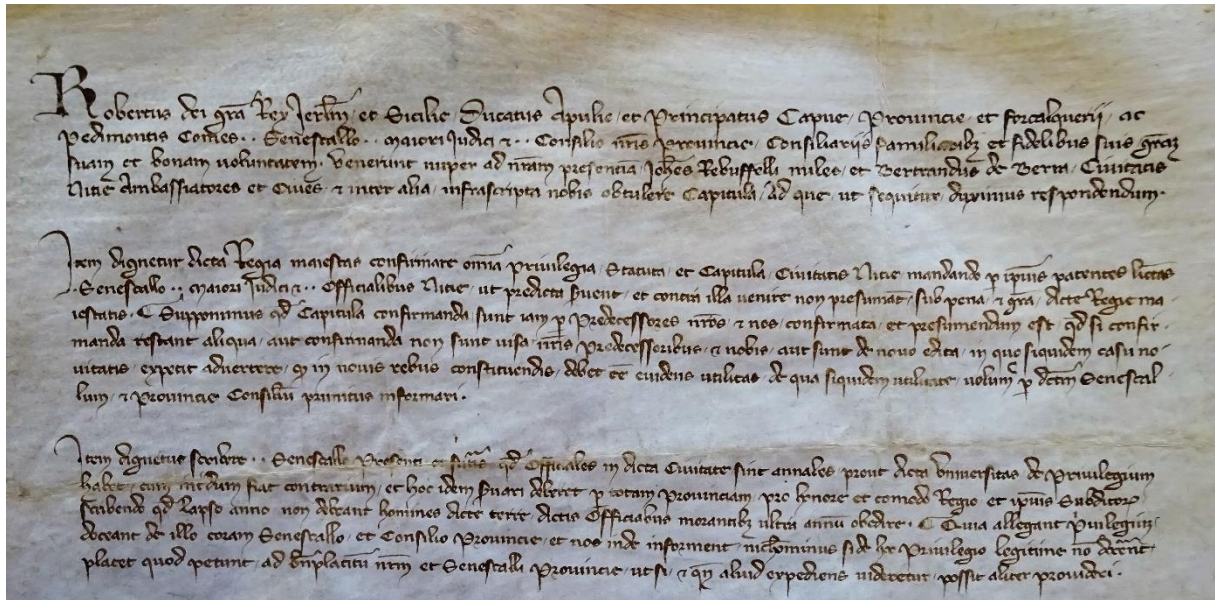 Robertus dei gra Rex Jerlm et Sicilie Ducatus Apulie et Principatus Capue Provincie et forcalquerii ac
Pedimontis Comes .. Senescallo .. Maiori Judici & .. Consilio nris Provincie Consiliariis familiaribz et fidelibus suis gram
suam et bonam voluntatem. Venerunt nuper ad nram presenciam Johes Rebuffelli miles et Bertrandus de Berra Civitatis
Nicie Ambassiatores et Cives & inter alia infrascripta nobis obtulere Capitula ad que ut sequitur duximus respondendum.
Item dignetur dicta Regia maiestas confirmare omia Privilegia Statuta et Capitula Civitatis Nicie mandando p ipius patentes licteras
.. Senescallo .. Maiori Judici & .. Officialibus Nicie ut predicta servent et contra illa venire non presumant sub pena & gra dicte Regie ma
iestatis. C Supponimus qd Capitula confirmanda sunt iam p Predecessores nros & nos confirmata et presumendum est qd si confir
manda restant aliqua aut confirmanda non sunt visa nris Predecessoribus & nobis aut sunt de novo edita in quo siquidem casu no
vitatis expetit advertere qd in novis rebus constituendis debet ee evidens utilitas de qua siquidem utilitate volum p dctm Senescal
lum & Provincie Consiliu primitus informari.
Item dignetur scribere .. Senescallo Presenti et futuris qd Officiales in dicta Civitate sint annales prout dicta Universitas de Privilegium
habet cum interdum fiat contrarium et hoc idem servari deberet p totam Provinciam pro honore et comodo Regio et ipius Subditor
scribendo qd lapso anno non debeant homines dicte terre dictis Officialibus morantibz ultra annu obedire. C Quia allegant privilegiu
doceant de illo coram Senescallo et Consilio Provincie et nos inde informent nichominus si de hoc Privilegio legitime no docerent
placet quod petunt ad bnplacitu nrm et Senescalli Provincie ut si & qn aliud expediens videretur possit aliter provideri.